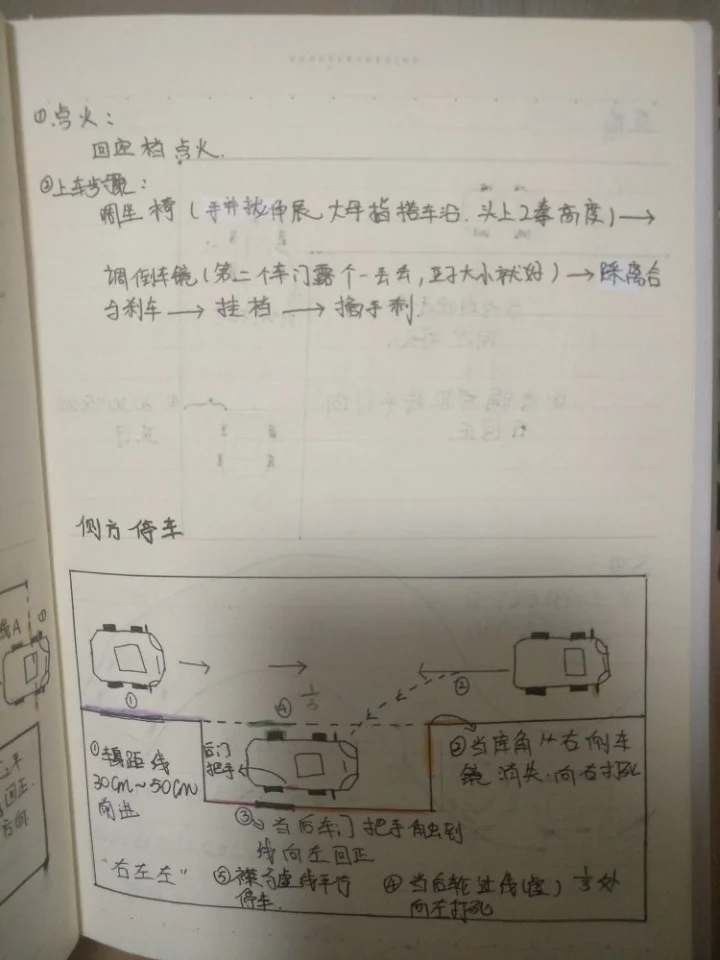 ①点火：
回空档点火.
②上车步骤：
调坐椅（手并拢伸展，大母指搭车沿.头上2拳高度）→
调倒车镜（第二个车门露个一去去，豆子大小就好）→踩离合
与刹车→挂档→摘手刹.
侧方停车
线A
①
①
④
1/3
②
①车身距线
30cm~50cm
前进
后门
把手
②当库角从右倒车
镜消失.向右打死
③当后车门把手触到
线向左回正
"右左左"
⑤与虚线平行
停车.
④当后轮过线(虚)1/3处
向左打死
回正.
方向